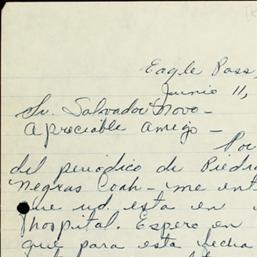 Eagle Pass,
Junio 11,
Sr. Salvador Novo -
Apreciable Amigo -
Por
del periódico de Piedra
Negras Coah - me ent
que ud. esta en
hospital. Espero en
que para esta fecha